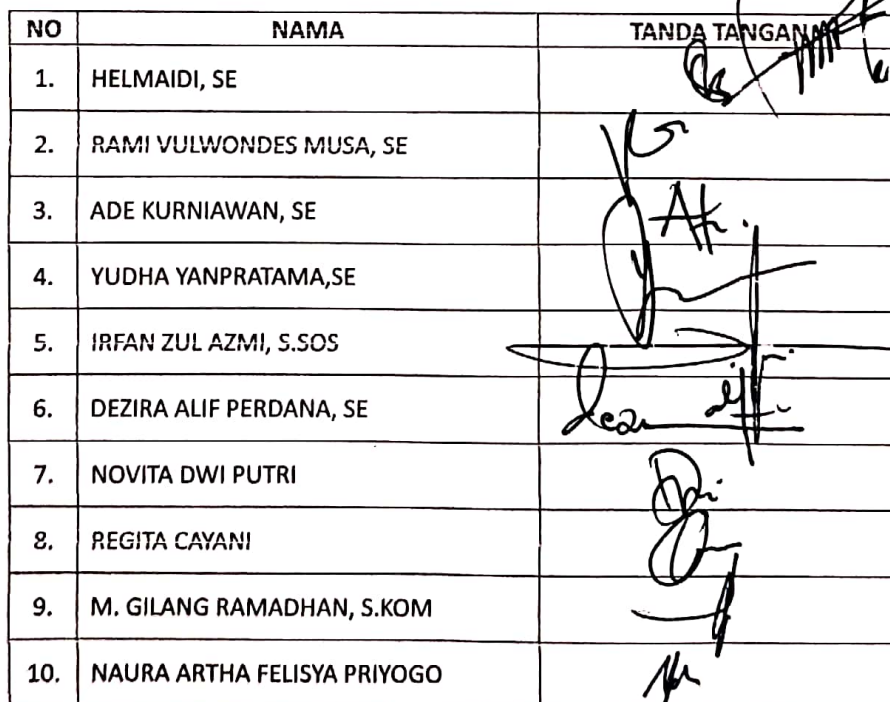 NO NAMA TANDA TANGAN
1. HELMAIDI, SE
2. RAMI VULWONDES MUSA, SE
3. ADE KURNIAWAN, SE
4. YUDHA YANPRATAMA,SE
5. IRFAN ZUL AZMI, S.SOS
6. DEZIRA ALIF PERDANA, SE
7. NOVITA DWI PUTRI
8. REGITA CAYANI
9. M. GILANG RAMADHAN, S.KOM
10. NAURA ARTHA FELISYA PRIYOGO